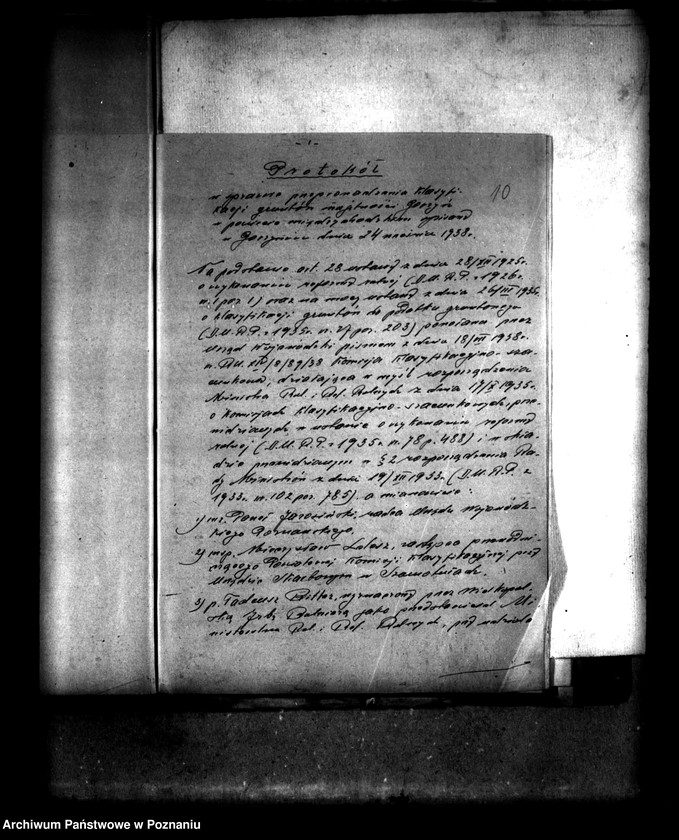 - 1 -
Protokół
10
w sprawie przeprowadzenia klasyfi-
kacji gruntów majętności
w powiecie międzychodzkim spisany
w dnia 24 września 1938r.
Na podstawie art. 28 ustawy z dnia 28/XII 1925r.
o wykonaniu reformy rolnej (Dz.U.R.P. z 1926r.
n. 1 poz. 1) oraz na mocy ustawy z dnia 26/III 1935r.
o klasyfikacji gruntów do podatku gruntowego
(Dz.U.R.P. z 1935r. n. 27 poz. 203) powołana przez
Urząd Wojewódzki pismem z dnia 18/III 1938r.
n. /8/89/38 Komisja klasyfikacyjno-sza-
cunkowa, działająca w myśl rozporządzenia
Ministra Rol. i Ref. Rolnych z dnia 17/X 1935r.
o komisjach klasyfikacyjno-szacunkowych, prze-
widzianych w ustawie o wykonaniu reformy
rolnej (Dz.U.R.P. z 1935r. n. 78 p. 483) i w skła-
dzie przewidzianym w § 2 rozporządzenia Ra-
dy Ministrów z dnia 19/XII 1933r. (Dz.U.R.P. z
1933r. n. 102 poz. 785) a mianowicie:
1) inż. Paweł radca Urzędu Wojewódz-
kiego Poznańskiego.
2) insp. Mieczysław zastępca przewodni-
czącego Powiatowej Komisji Klasyfikacyjnej przy
Urzędzie Skarbowym w Szamotułach.
3) p. Tadeusz wyznaczony przez Wielkopol-
ską Izbę Rolniczą jako przedstawiciel Mi-
nisterstwa Rol. i Ref. Rolnych, przy udziale
Archiwum Państwowe w Poznaniu